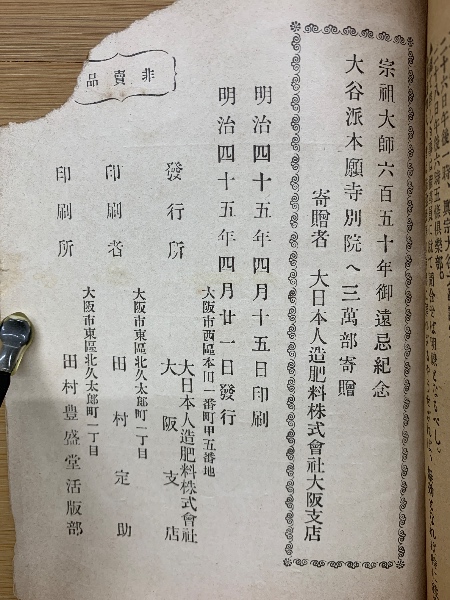 宗祖大師六百五十年御遠忌紀念
大谷派本願寺別院へ三萬部寄贈
寄贈者 大日本人造肥料株式會社大阪支店
明治四十五年四月十五日印刷
明治四十五年四月廿一日發行
大阪市西區本田一番町甲五番地
發行所 大日本人造肥料株式會社
大阪支店
大阪市東區北久太郎町一丁目
印刷者 田村定助
大阪市東區北久太郎町一丁目
印刷所 田村豊盛堂活版部
非賣品